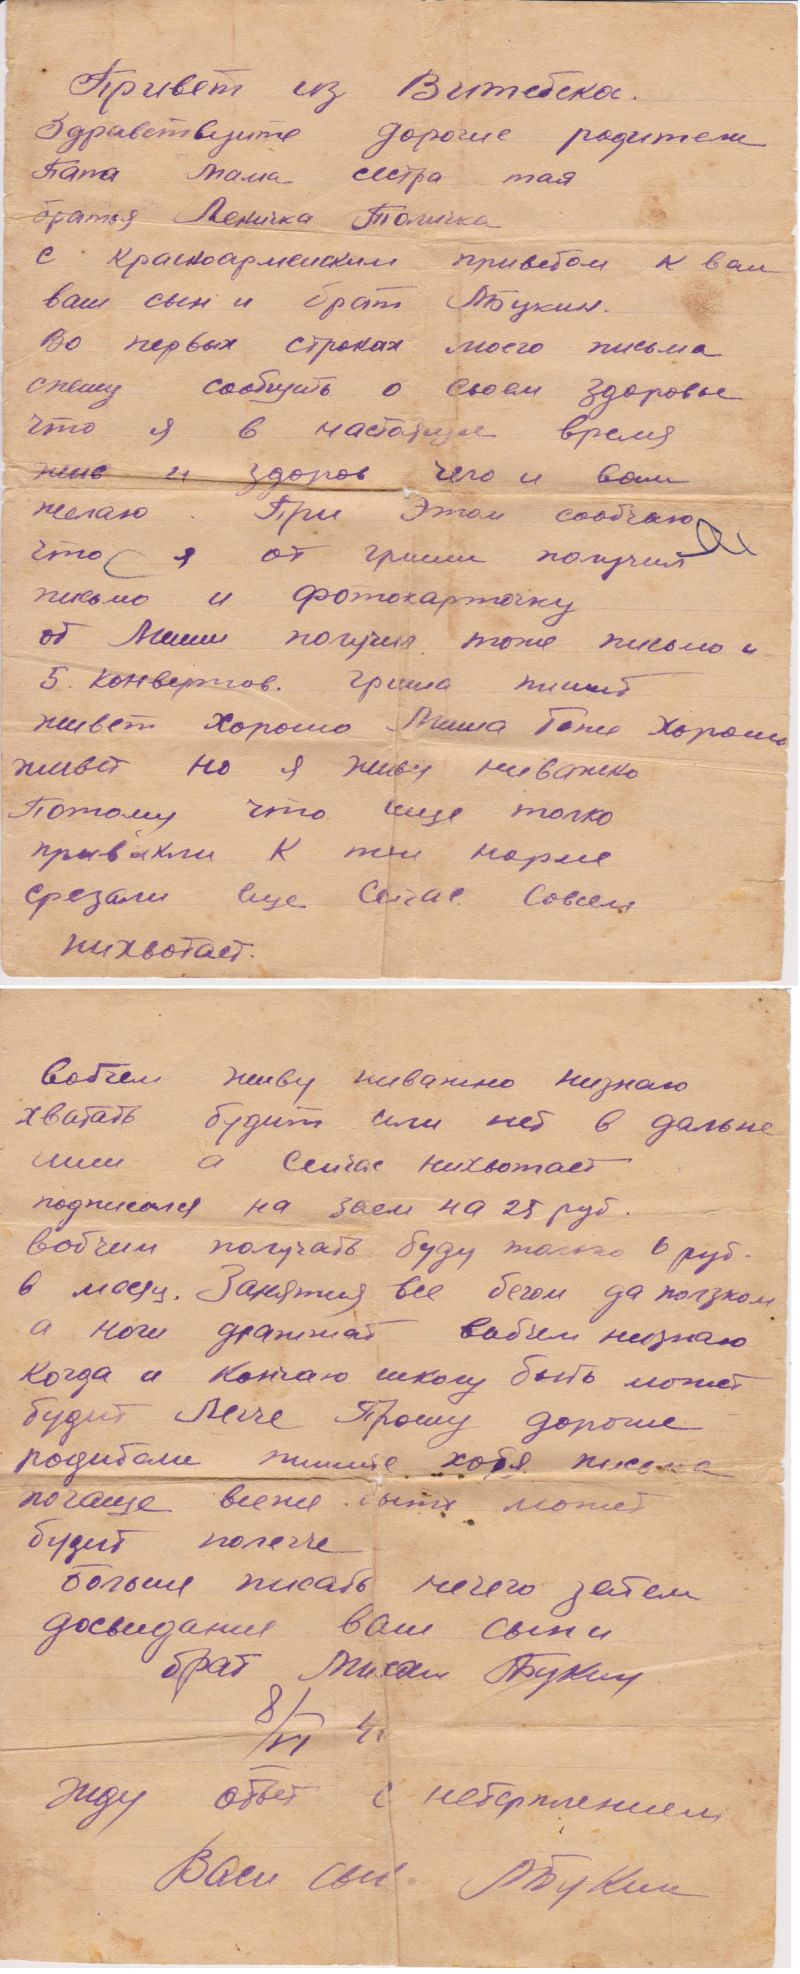 Привет из Витебска.
Здравствуйте дорогие родители
Папа Мама сестра тая
братья Леничка Толичка
с красноармейским приветом к вам
ваш сын и брат МБукин.
Во первых строках моего письма
спешу сообщить о своем здоровье
что я в настоящие время
жив и здоров чего и вам
желаю. При этом сообчаю
что я от гриши получил
письмо и фотокарточку
от Миши получил тоже письмо и
5. конвертов. гриша пишит
живет хорошо Миша тоже хорошо
живет но я живу ниважно
Потому что еще толко
привыкли к тои норме
срезали еще сейчас совсем
нихвотает.
вобчем живу ниважно низнаю
хватать будит или нет в дальне
ишим а сейчас нихвотает
подписался на заем на 25 руб.
вобчим получать буду только 6 руб.
в месяц. Занятия все бегом да ползком
а ноги дражжат вобчем низнаю
когда и кончаю школу быть может
будит Легче Прошу дорогие
родители пишите хотя письма
почаще всеже быть может
будит полегче
Больше писать нечего затем
досвидание ваш сын и
брат Михаил Букин
8/VI 41
Жду ответ с нетерплением
Ваш сын МБукин